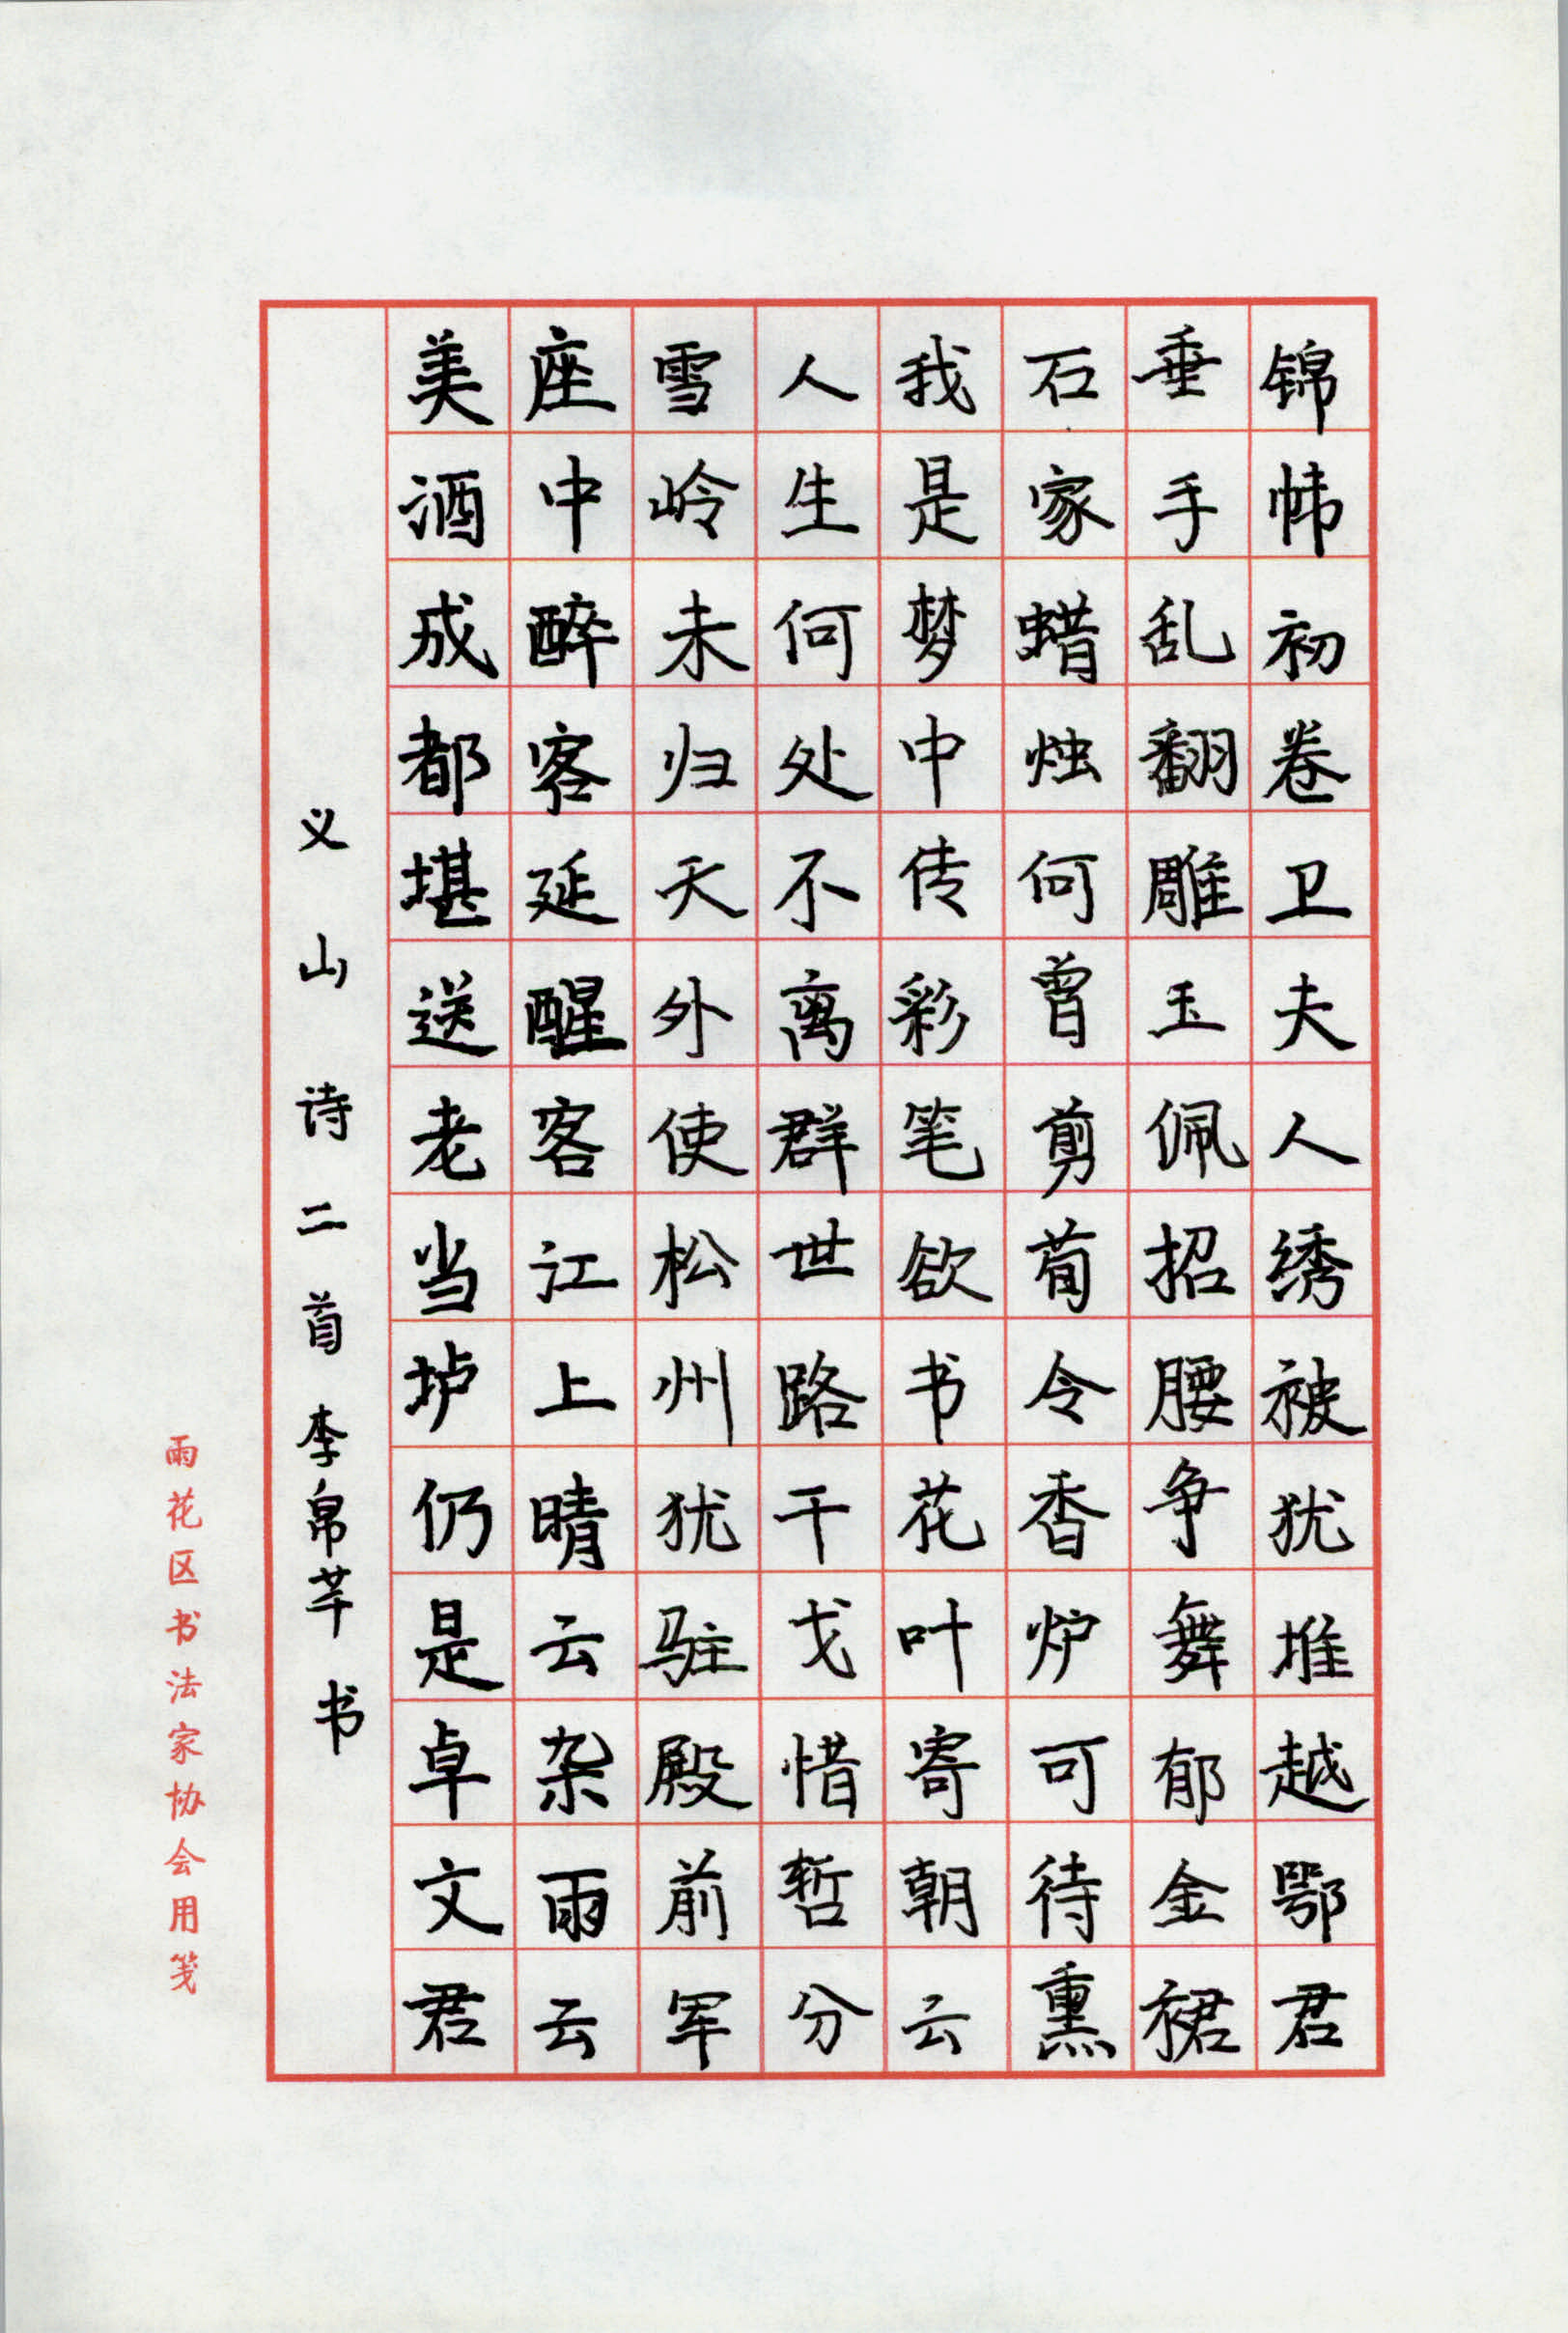 锦帏初卷卫夫人绣被犹堆越鄂君
垂手乱翻雕玉佩招腰争舞郁金裙
石家蜡烛何曾剪荀令香炉可待熏
我是梦中传彩笔欲书花叶寄朝云
人生何处不离群世路干戈惜暂分
雪岭未归天外使松州犹驻殿前军
座中醉客延醒客江上晴云杂雨云
美酒成都堪送老当垆仍是卓文君
义山诗二首李帛芊书
雨花区书法家协会用笺